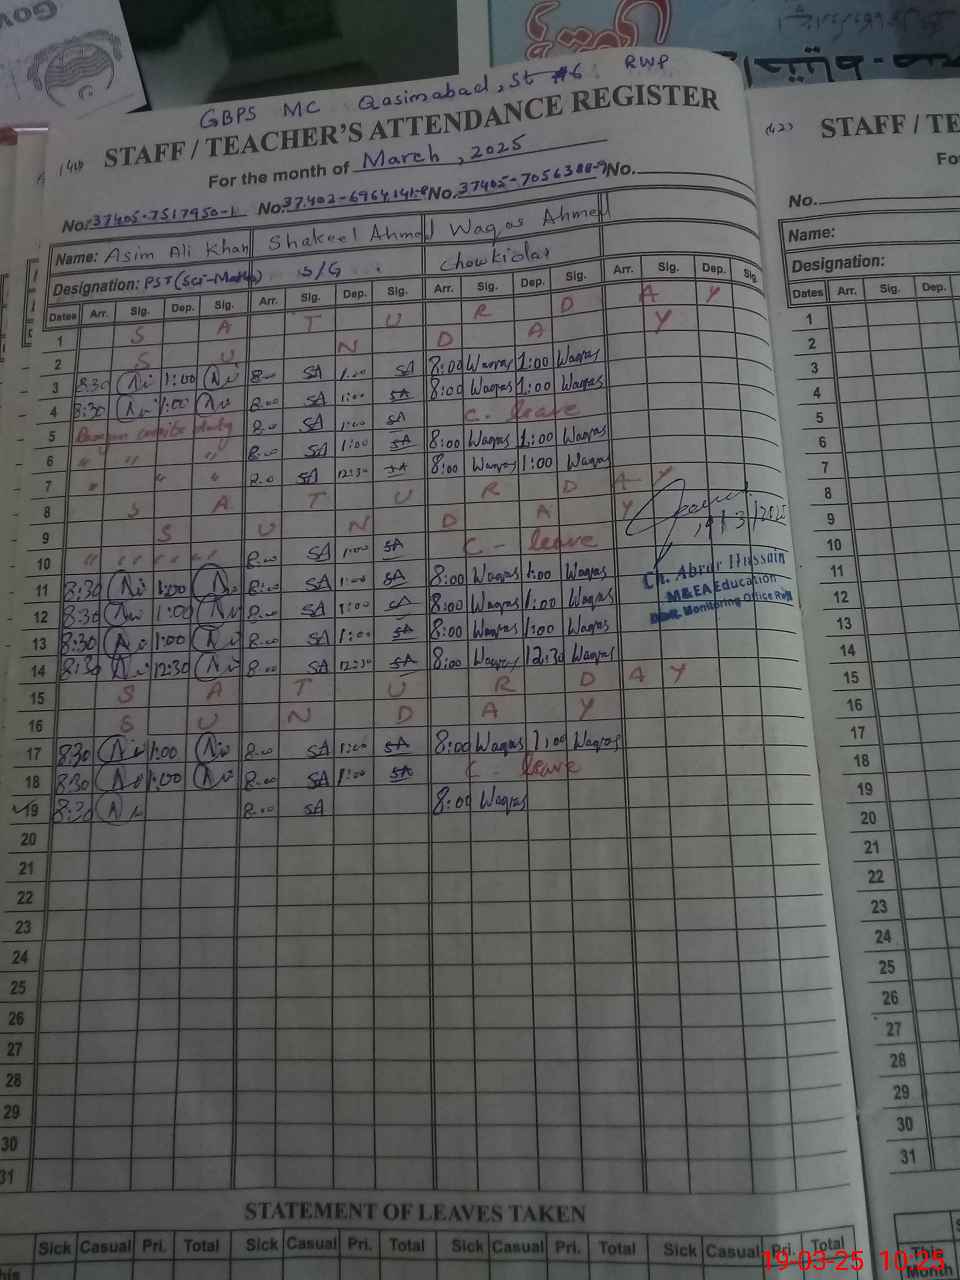 GOV
GBPS MC Qasimabad, St #6 RWP
STAFF / TEACHER'S ATTENDANCE REGISTER
For the month of March, 2025
No. 37405-7517950-1 No. No. No.
Name: Asim Ali Khan Shakeel Ahmed Waqas Ahmed
Designation: PST (Sci-Maths) S/G Chowkidar
Dates Arr. Sig. Dep. Sig. Arr. Sig. Dep. Sig. Arr. Sig. Dep. Sig. Arr. Sig. Dep. Sig.
1 S A T U R D A Y
2 S U N D A Y
3 8:30 1:00 8:00 SA 1:00 SA 8:00 Waqas 1:00 Waqas
4 8:30 1:00 8:00 SA 1:00 SA 8:00 Waqas 1:00 Waqas
5 duty 8:00 SA 1:00 SA C. leave
6 " " " 8:00 SA 1:00 SA 8:00 Waqas 1:00 Waqas
7 " " " 8:00 SA 12:30 SA 8:00 Waqas 1:00 Waqas
8 S A T U R D A Y
9 S U N D A Y
10 " " " " " 8:00 SA 1:00 SA C - leave
11 8:30 1:00 8:00 SA 1:00 SA 8:00 Waqas 1:00 Waqas
12 8:30 1:00 8:00 SA 1:00 SA 8:00 Waqas 1:00 Waqas
13 8:30 1:00 8:00 SA 1:00 SA 8:00 Waqas 1:00 Waqas
14 8:30 12:30 8:00 SA 12:30 SA 8:00 Waqas 12:30 Waqas
15 S A T U R D A Y
16 S U N D A Y
17 8:30 1:00 8:00 SA 1:00 SA 8:00 Waqas 1:00 Waqas
18 8:30 1:00 8:00 SA 1:00 SA C - leave
19 8:30 8:00 SA 8:00 Waqas
20
21
22
23
24
25
26
27
28
29
30
31
19/3/2025
Ch. Abrar Hussain
M&EA Education
Distt. Monitoring Office Rwp
STATEMENT OF LEAVES TAKEN
Sick Casual Pri. Total Sick Casual Pri. Total Sick Casual Pri. Total Sick Casual Pri. Total
This
(42)
STAFF / TE
Fo
No.
Name:
Designation:
Dates Arr. Sig. Dep.
1
2
3
4
5
6
7
8
9
10
11
12
13
14
15
16
17
18
19
20
21
22
23
24
25
26
27
28
29
30
31
This
Month
19-03-25 10:25